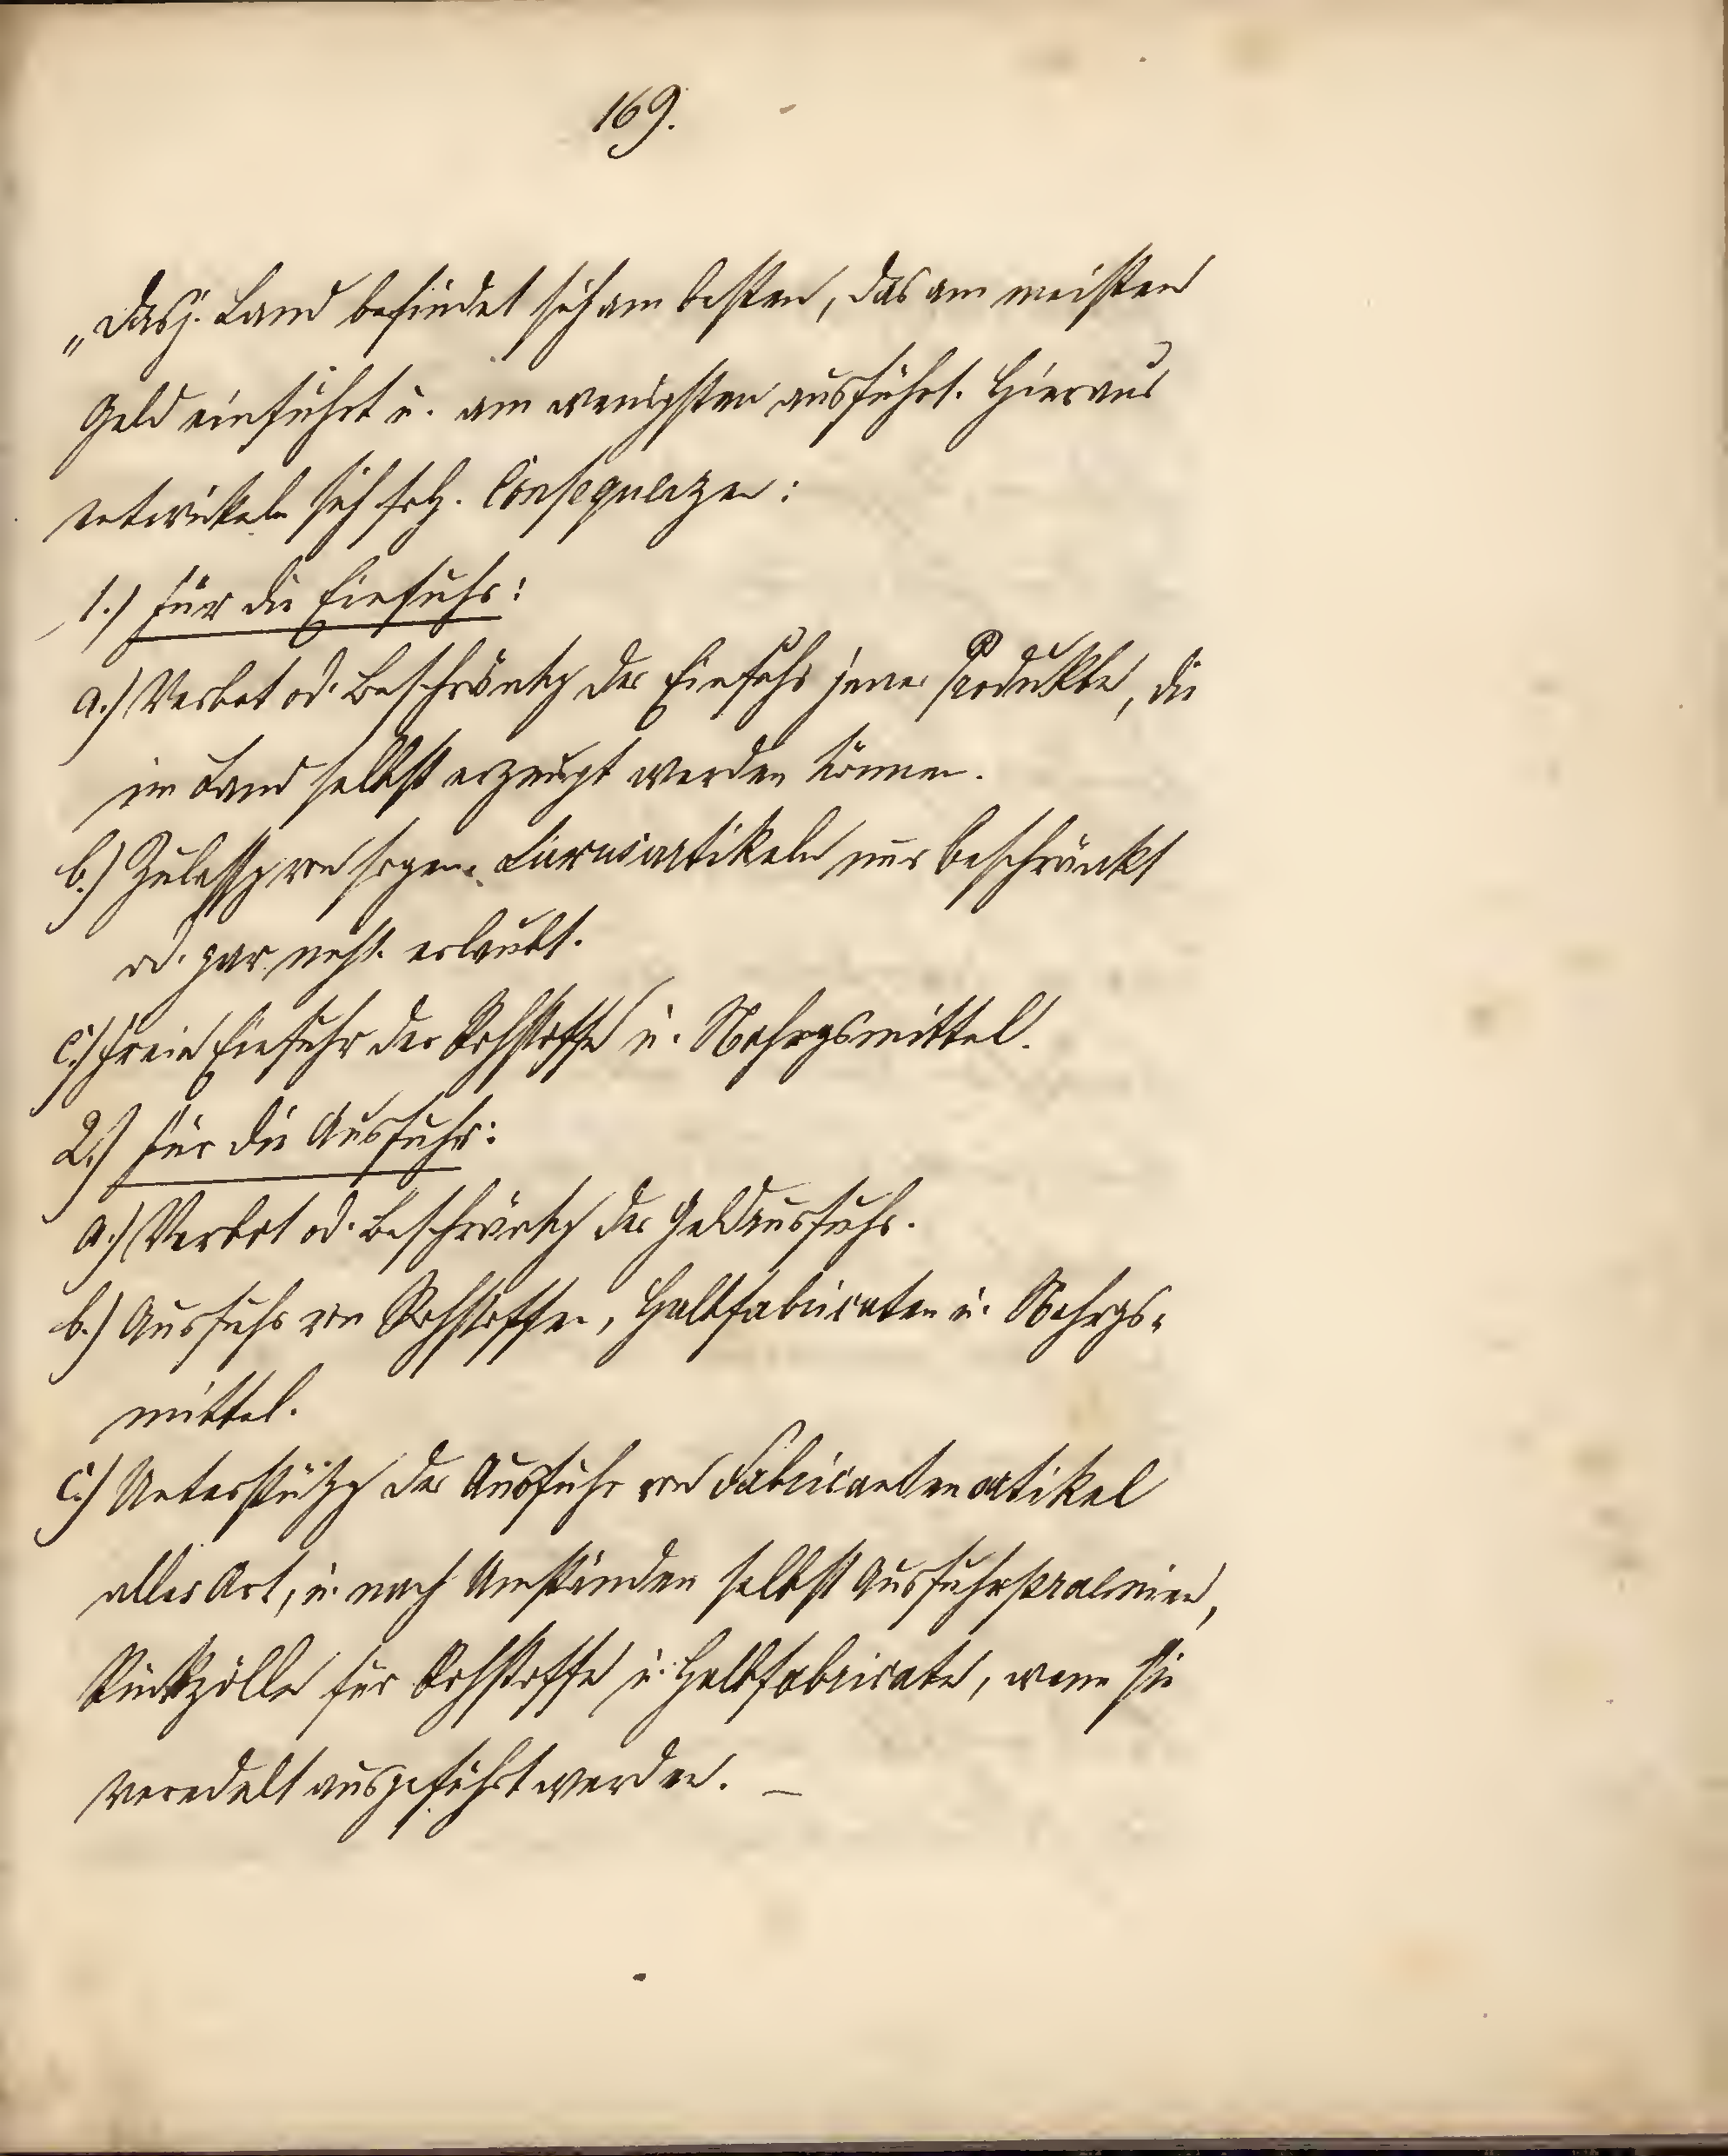 169.
„Dasj. Land befindet sich am besten, das am meisten
Geld einführt u. am wenigsten ausführt. Hieraus
entwickeln sich folg. Consequenzen:
1.) Für die Einfuhr:
a.) Verbot od. Beschränkg der Einfuhr jener Produkte, die
im Land selbst erzeugt werden können.
b.) Zulassg von sogen. Luxusartikeln nur beschränkt
od. gar nicht erlaubt.
c.) Freie Einfuhr der Rohstoffe u. Nahrgsmittel.
2.) Für die Ausfuhr:
a.) Verbot od. Beschränkg der Geldausfuhr.
b.) Ausfuhr von Rohstoffen, Halbfabricaten u. Nahrgs-
mittel.
c.) Unterstützg der Ausfuhr von Fabricantenartikel
aller Art, u. nach Umständen selbst Ausfuhrpraemien,
Rückzölle für Rohstoffe u. Halbfabricate, wenn sie
veredelt ausgeführt werden. —